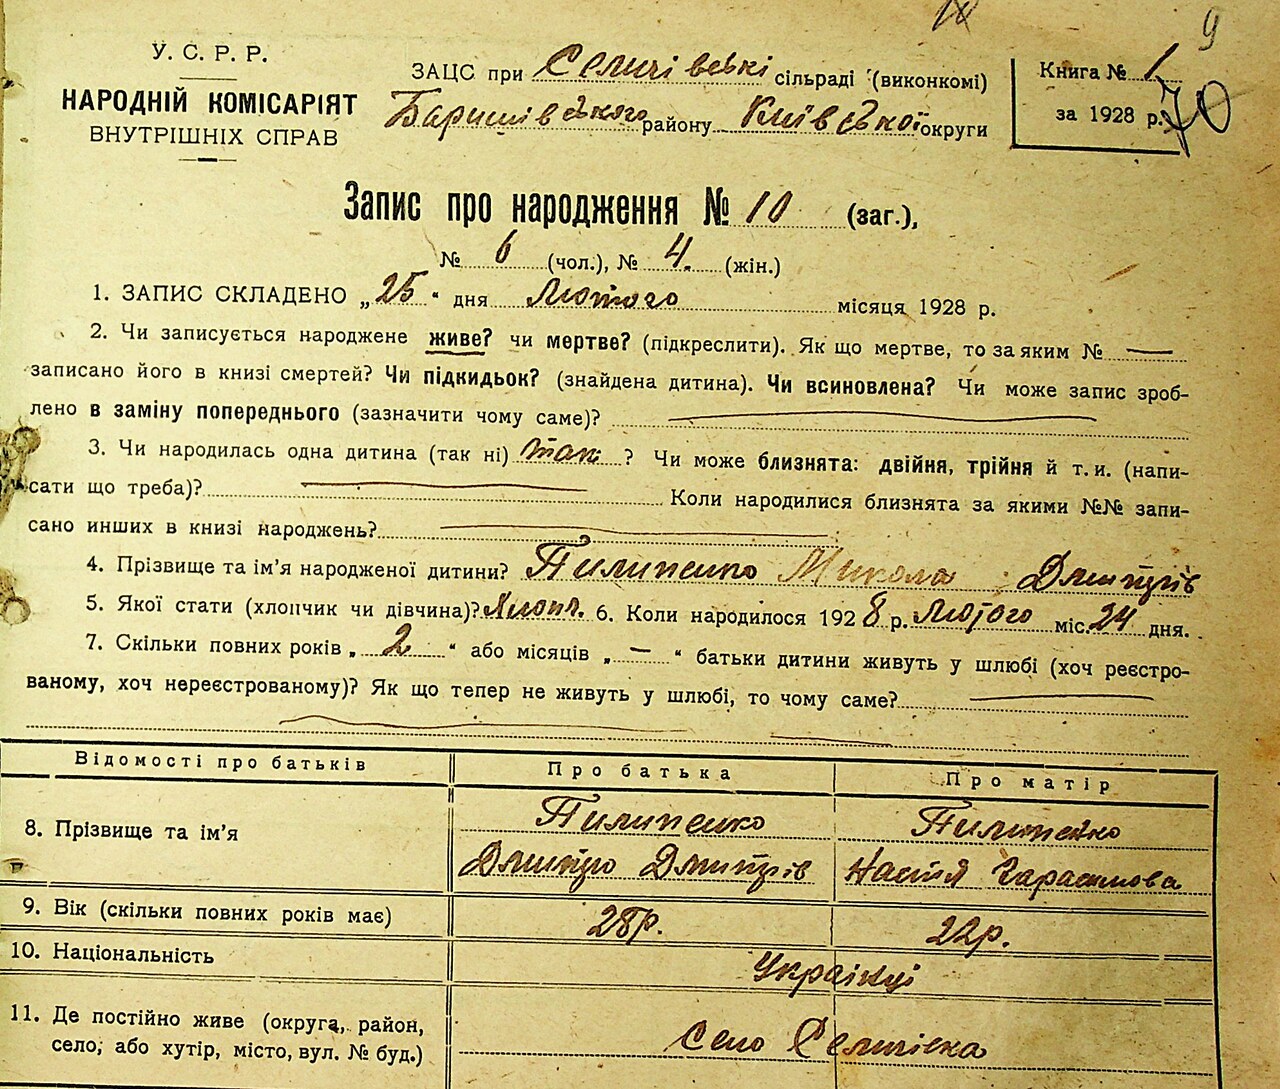 9
У. С. Р. Р.
НАРОДНІЙ КОМІСАРІЯТ
ВНУТРІШНІХ СПРАВ
ЗАЦС при Селичівські сільраді (виконкомі)
Баришівського району Київської округи
Книга № 1
за 1928 р.
70
Запис про народження № 10 (заг.),
№ 6 (чол.), № 4. (жін.)
1. ЗАПИС СКЛАДЕНО „25“ дня Лютого місяця 1928 р.
2. Чи записується народжене живе? чи мертве? (підкреслити). Як що мертве, то за яким № —
записано його в книзі смертей? Чи підкидьок? (знайдена дитина). Чи всиновлена? Чи може запис зроб-
лено в заміну попереднього (зазначити чому саме)?
3. Чи народилась одна дитина (так ні) так ? Чи може близнята: двійня, трійня й т. и. (напи-
сати що треба)? Коли народилися близнята за якими №№ запи-
сано инших в книзі народжень?
4. Прізвище та ім'я народженої дитини? Пилипенко Микола Дмитрів
5. Якої стати (хлопчик чи дівчина)? Хлопч. 6. Коли народилося 1928 р. Лютого міс. 24 дня.
7. Скільки повних років „ 2 “ або місяців „ — “ батьки дитини живуть у шлюбі (хоч реєстро-
ваному, хоч нереєстрованому)? Як що тепер не живуть у шлюбі, то чому саме?
Відомості про батьків Про батька Про матір
8. Прізвище та ім'я Пилипенко Пилипенко
Дмитро Дмитрів Настія Гарасимова
9. Вік (скільки повних років має) 28р. 22р.
10. Національність Українці
11. Де постійно живе (округа, район,
село, або хутір, місто, вул. № буд.) Село Селичівка